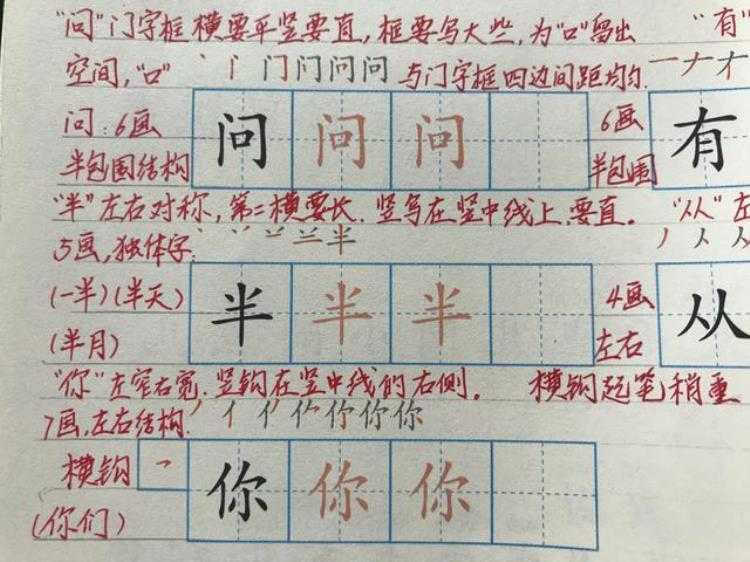 "问"门字框横要平竖要直,框要写大些,为"口"留出 "有"
空间,"口" 丶 丨 门 门 问 问 与门字框四边间距均匀. 一 ナ 才
问:6画 问 问 问 6画 有
半包围结构 半包围
"半"左右对称,第二横要长.竖写在竖中线上,要直。 "从"左
5画,独体字: 半 丿 人 从
(一半)(半天) 半 半 半 4画 从
(半月) 左右
"你"左窄右宽.竖钩在竖中线的右侧。 横钩起笔稍重
7画,左右结构. 丿 亻 你 你
横钩 你 你 你
(你们)